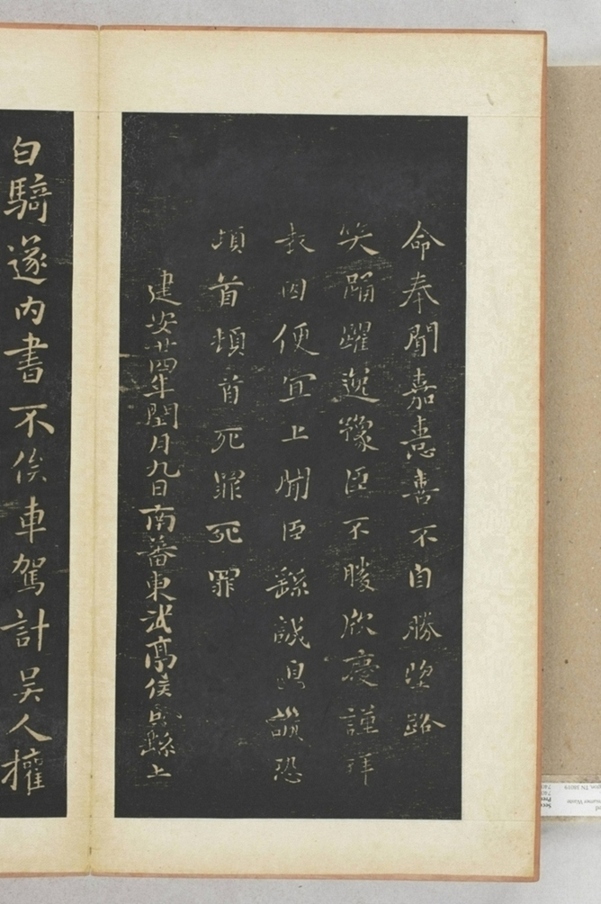 命奉聞嘉憙喜不自勝望路
笑踊躍逸豫臣不勝欣慶謹拜
表因便宜上聞臣繇誠皇誠恐
頓首頓首死罪死罪
建安廿四年閏月九日南蕃東武亭侯臣繇上
白騎遂內書不俟車駕計吳人權